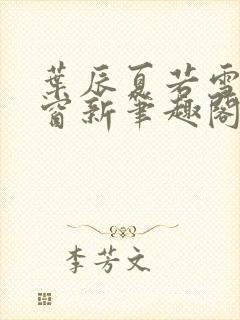 葉辰夏若雪
窗新筆趣閣
李芳文